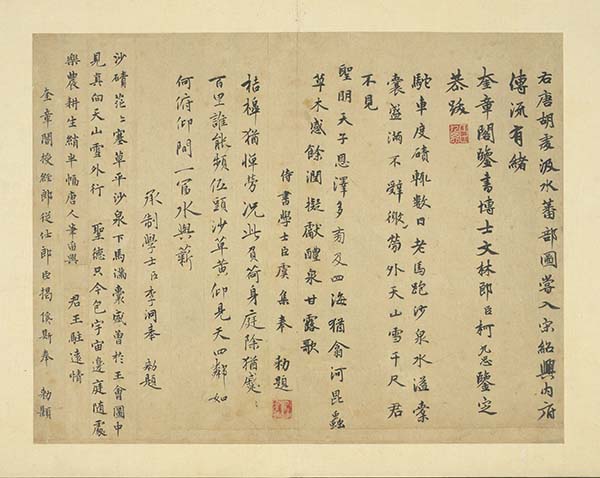 右唐胡虔汲水蕃部圖嘗入宋紹興內府
傳流有緒
奎章閣鑒書博士文林郎臣柯九思鑒定
恭跋
駝車度磧輒數日老馬跑沙泉水溢橐
囊盛滿不辭勞外天山雪千尺君
不見
聖明天子恩澤多及四海猶翕河昆蟲
草木感餘潤擬獻醴泉甘露歌
侍書學士臣虞集奉 勅題
桔槔猶憚勞況此負荷身庭除猶
百里誰能頻低頭沙草黃仰見天四鄰如
何俯仰間一官水與薪
承制學士臣李泂奉 勅題
沙磧茫〻塞草平沙泉下馬滿囊盛曾於王會圖中
見真向天山雪外行 聖德只今包宇宙邊庭隨處
樂農耕生綃半幅唐人筆留與 君王駐遠情
奎章閣授經郎從仕郎臣揭傒斯奉 勅題